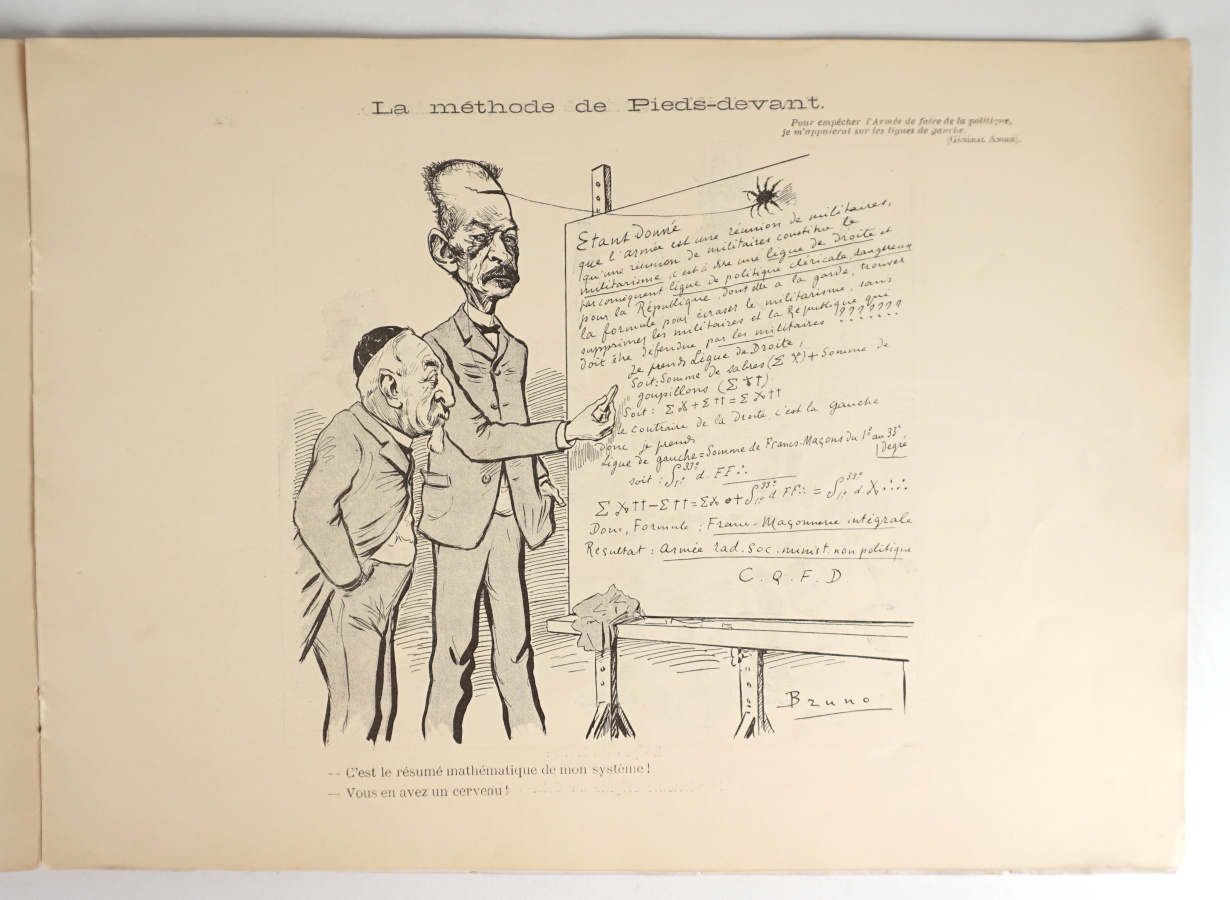 La méthode de Pieds-devant.
Pour empêcher l'Armée de faire de la politique,
je m'appuierai sur les ligues de gauche.
(Général André).
Etant Donné
que l'armée est une réunion de militaires,
qu'une réunion de militaires constitue le
militarisme, c'est à dire une ligue de Droite et
par conséquent ligue de politique cléricale, dangereux
pour la République, dont elle a la garde, trouver
la formule pour écraser le militarisme, sans
supprimer les militaires et la République qui
doit être défendue par les militaires ???????
Je prends Ligue de Droite,
Soit: Somme de sabres (Σ X) + Somme de
goupillons (Σ ††)
Soit : Σ X + Σ †† = Σ X ††
le contraire de la Droite c'est la Gauche
Donc je prends
Ligue de gauche = Somme de Francs-Maçons du 1° au 33°
degré
soit : ∫₁°³³° d. FF∴
Σ X †† – Σ †† = Σ X + ∫₁°³³° d. FF∴ = ∫₁°³³° d. X ∴∴
Donc, Formule : Franc-Maçonnerie intégrale
Résultat : Armée rad. soc. minist. non politique
C. Q. F. D.
Bruno
-- C'est le résumé mathématique de mon système !
— Vous en avez un cerveau !